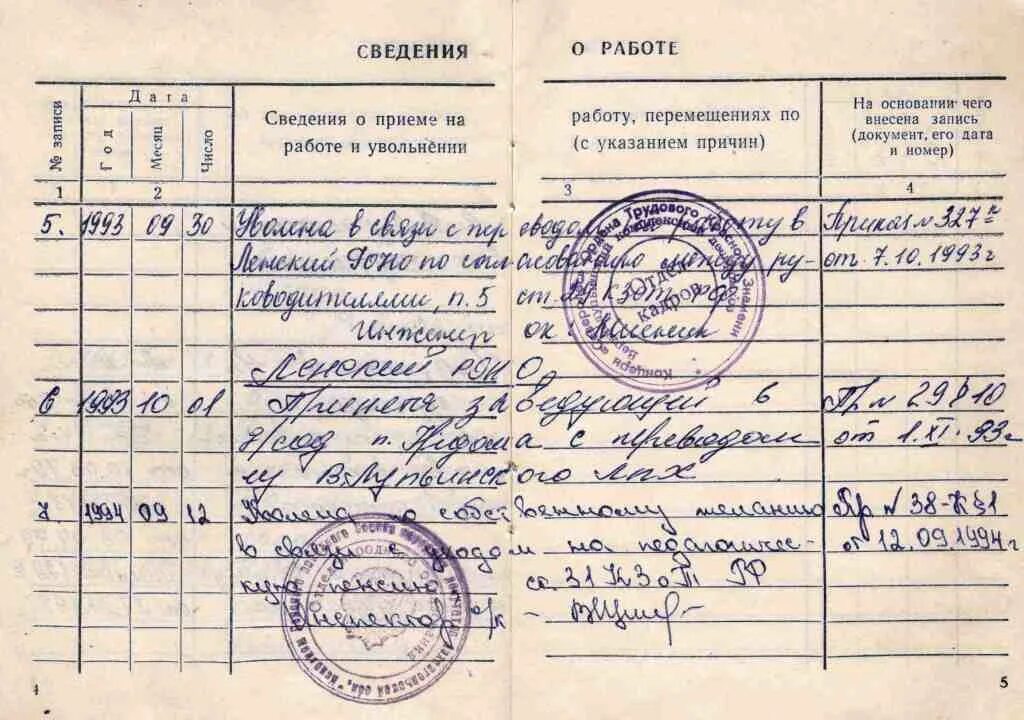 СВЕДЕНИЯ О РАБОТЕ
№ записи
Дата
Год
Месяц
Число
Сведения о приеме на работу, перемещениях по
работе и увольнении (с указанием причин)
На основании чего
внесена запись
(документ, его дата
и номер)
1 2 3 4
5. 1993 09 30 Уволена в связи с переводом на работу в Приказ № 327
Ленский РОНО по согласованию между ру от 7.10.1993 г
ководителями, п. 5 ст. КЗОТ РФ
Инженер ОК
Ленский РОНО
6 1993 10 01 Принята заведующей в Пр № 29 § 10
д/сад п. с переводом от 1.XI.93 г
из В-Лупьинского ЛПХ
7. 1994 09 12 Уволена по собственному желанию Пр № 38-К §1
в связи с уходом на педагогичес- от 12.09.1994 г
кую пенсию ст. 31 КЗоТ РФ
Инспектор о/к
Отдел
кадров
ордена Трудового Красного Знамени
Концерн
4 5